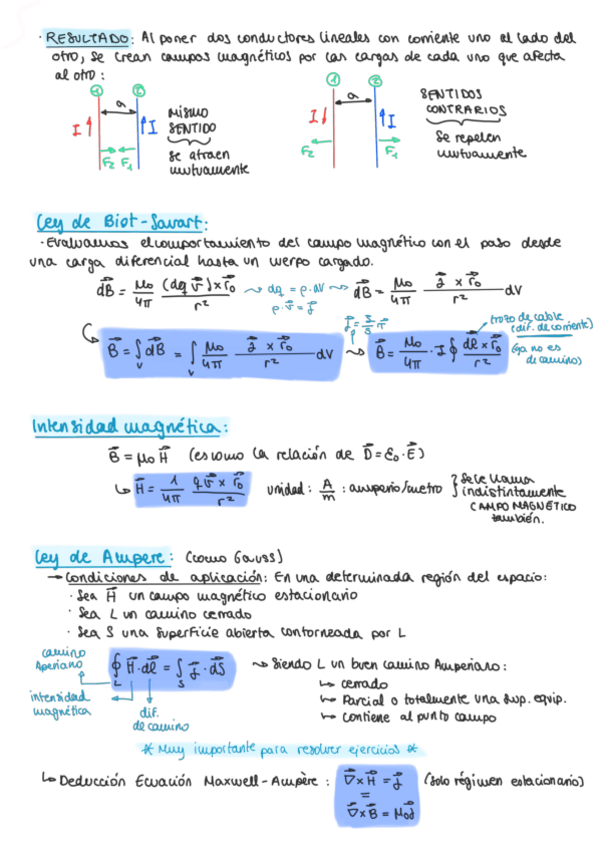 · RESULTADO: Al poner dos conductores lineales con corriente uno al lado del
otro, se crean campos magnéticos por las cargas de cada uno que afecta
al otro:
1 2 a I I F2 F1
MISMO
SENTIDO
Se atraen
mutuamente
1 2 a I I F2 F1
SENTIDOS
CONTRARIOS
Se repelen
mutuamente
Ley de Biot-Savart:
· Evaluamos el comportamiento del campo magnético con el paso desde
una carga diferencial hasta un cuerpo cargado.
dB⃗ = μ0/4π (dq v⃗) × r⃗0 / r² ⇝ dq = ρ·dV ⇝ dB⃗ = μ0/4π j⃗ × r⃗0 / r² dV
ρ·v⃗ = j⃗
j⃗ = I/S n⃗
trozo de cable
(dif. de corriente)
(ya no es
de camino)
B⃗ = ∫V dB⃗ = ∫V μ0/4π j⃗ × r⃗0 / r² dV ⇝ B⃗ = μ0/4π · I ∮ dl⃗ × r⃗0 / r²
Intensidad magnética:
B⃗ = μ0 H⃗ (es como la relación de D⃗ = ε0·E⃗)
↳ H⃗ = 1/4π q v⃗ × r⃗0 / r² unidad: A/m : amperio/metro
Se le llama
indistintamente
CAMPO MAGNÉTICO
también.
Ley de Ampere: (como Gauss)
→ Condiciones de aplicación: En una determinada región del espacio:
· Sea H⃗ un campo magnético estacionario
· Sea L un camino cerrado
· Sea S una superficie abierta contorneada por L
camino
Aperiano
∮L H⃗·dl⃗ = ∫S j⃗·dS⃗ ⇝ Siendo L un buen camino Amperiano:
↳ cerrado
↳ Parcial o totalmente una sup. equip.
↳ Contiene al punto campo
intensidad
magnética
dif.
de camino
* Muy importante para resolver ejercicios *
↳ Deducción Ecuación Maxwell-Ampère: ∇⃗×H⃗ = j⃗ (solo régimen estacionario)
=
∇⃗×B⃗ = μ0j⃗